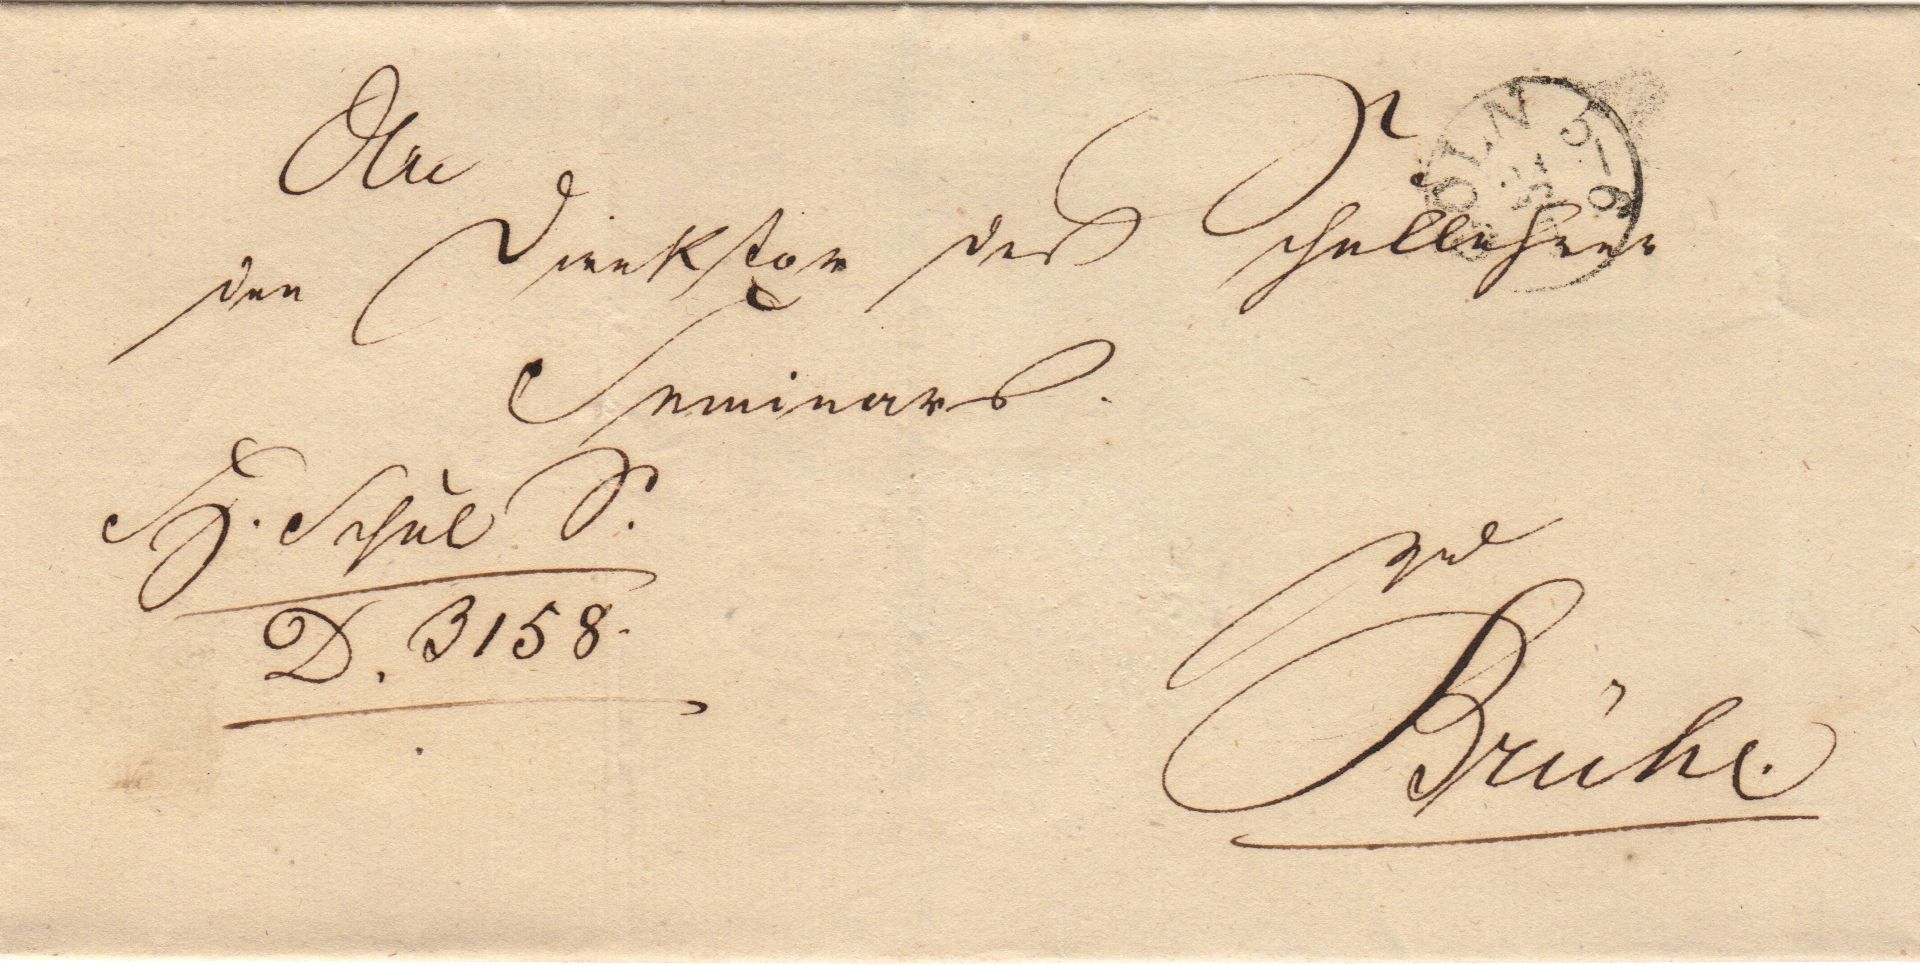 An
den Direktor des Schullehrer
Seminars.
H. Schul S.
D. 3158.
zu
Brühl.
CÖLN 5-6